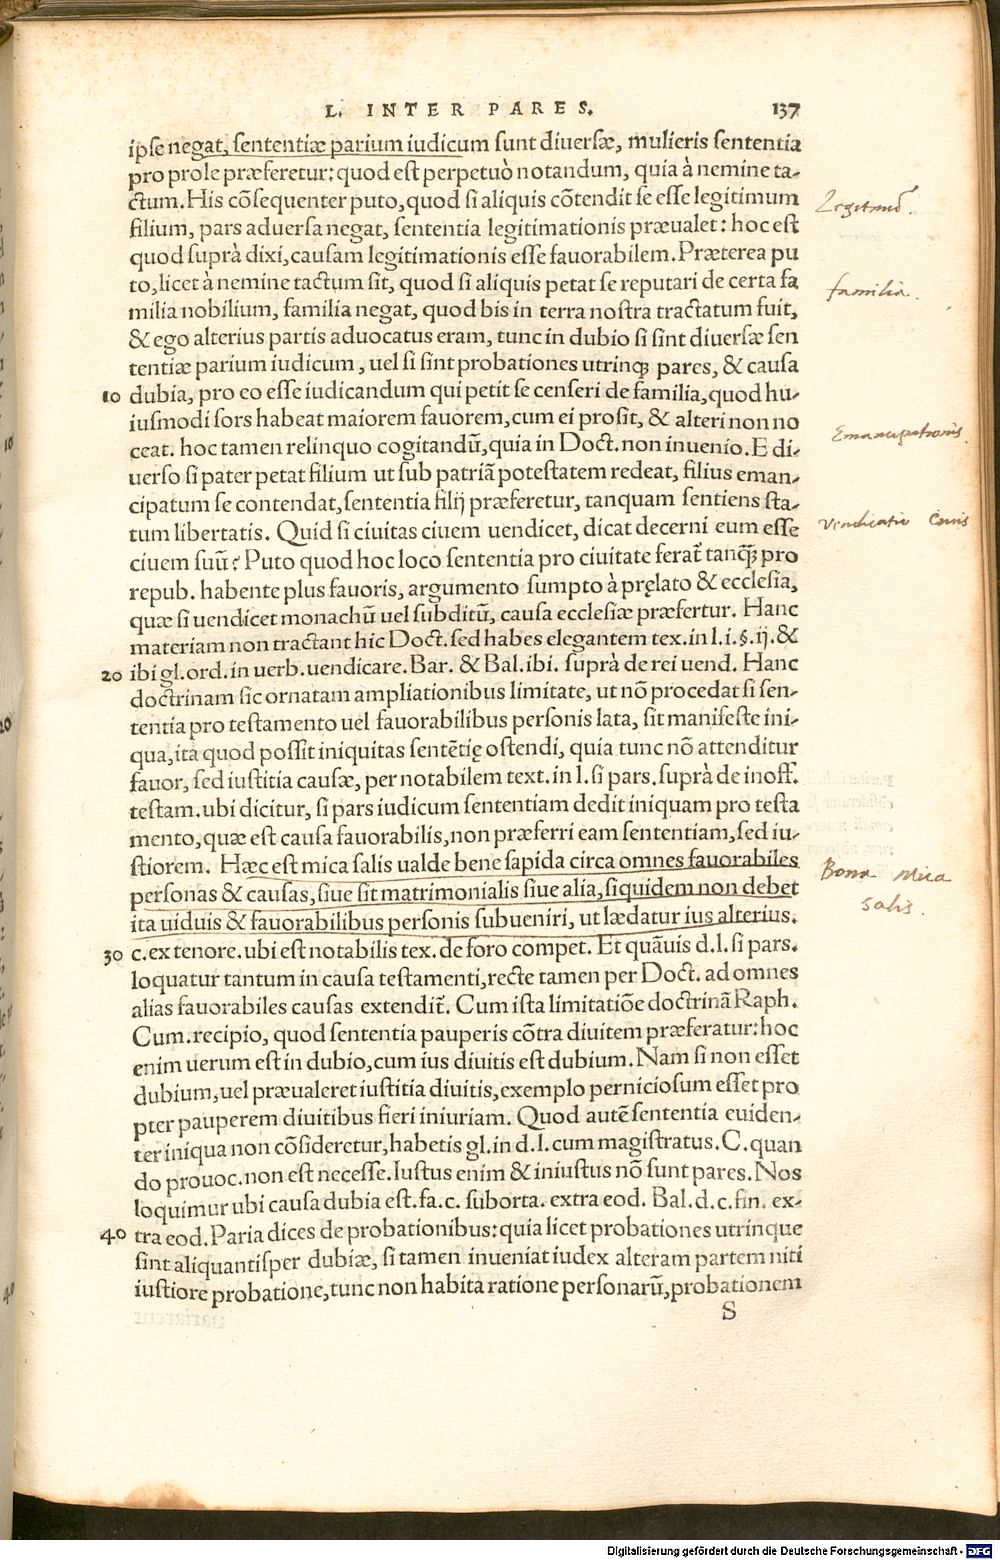 L. INTER PARES. 137
ipse negat, sententiæ parium iudicum sunt diuersæ, mulieris sententia
pro prole præferetur: quod est perpetuò notandum, quia à nemine ta-
ctum. His cōsequenter puto, quod si aliquis cōtendit se esse legitimum
filium, pars aduersa negat, sententia legitimationis præualet: hoc est
quod suprà dixi, causam legitimationis esse fauorabilem. Præterea pu
to, licet à nemine tactum sit, quod si aliquis petat se reputari de certa fa
milia nobilium, familia negat, quod bis in terra nostra tractatum fuit,
& ego alterius partis aduocatus eram, tunc in dubio si sint diuersæ sen
tentiæ parium iudicum, uel si sint probationes utrinq; pares, & causa
10 dubia, pro eo esse iudicandum qui petit se censeri de familia, quod hu-
iusmodi sors habeat maiorem fauorem, cum ei prosit, & alteri non no
ceat. hoc tamen relinquo cogitandū, quia in Doct. non inuenio. E di-
uerso si pater petat filium ut sub patriā potestatem redeat, filius eman-
cipatum se contendat, sententia filij præferetur, tanquam sentiens sta-
tum libertatis. Quid si ciuitas ciuem uendicet, dicat decerni eum esse
ciuem suū? Puto quod hoc loco sententia pro ciuitate ferat̄ tanq̄ pro
repub. habente plus fauoris, argumento sumpto à pręlato & ecclesia,
quæ si uendicet monachū uel subditū, causa ecclesiæ præfertur. Hanc
materiam non tractant hic Doct. sed habes elegantem tex. in l. i. §. ij. &
20 ibi gl. ord. in uerb. uendicare. Bar. & Bal. ibi. suprà de rei uend. Hanc
doctrinam sic ornatam ampliationibus limitate, ut nō procedat si sen-
tentia pro testamento uel fauorabilibus personis lata, sit manifeste ini-
qua, ita quod possit iniquitas sentētię ostendi, quia tunc nō attenditur
fauor, sed iustitia causæ, per notabilem text. in l. si pars. suprà de inoff.
testam. ubi dicitur, si pars iudicum sententiam dedit iniquam pro testa
mento, quæ est causa fauorabilis, non præferri eam sententiam, sed iu-
stiorem. Hæc est mica salis ualde bene sapida circa omnes fauorabiles
personas & causas, siue sit matrimonialis siue alia, siquidem non debet
ita uiduis & fauorabilibus personis subueniri, ut lædatur ius alterius.
30 c. ex tenore. ubi est notabilis tex. de foro compet. Et quāuis d. l. si pars.
loquatur tantum in causa testamenti, recte tamen per Doct. ad omnes
alias fauorabiles causas extendit̄. Cum ista limitatiōe doctrinā Raph.
Cum. recipio, quod sententia pauperis cōtra diuitem præferatur: hoc
enim uerum est in dubio, cum ius diuitis est dubium. Nam si non esset
dubium, uel præualeret iustitia diuitis, exemplo perniciosum esset pro
pter pauperem diuitibus fieri iniuriam. Quod autē sententia euiden-
ter iniqua non cōsideretur, habetis gl. in d. l. cum magistratus. C. quan
do prouoc. non est necesse. Iustus enim & iniustus nō sunt pares. Nos
loquimur ubi causa dubia est. fa. c. suborta. extra eod. Bal. d. c. fin. ex-
40 tra eod. Paria dices de probationibus: quia licet probationes utrinque
sint aliquantisper dubiæ, si tamen inueniat iudex alteram partem niti
iustiore probatione, tunc non habita ratione personarū, probationem
S
familia.
Emancipationis.
vendicatio Ciuis
Bona Mica
salis.
10
20
40
Digitalisierung gefördert durch die Deutsche Forschungsgemeinschaft - DFG